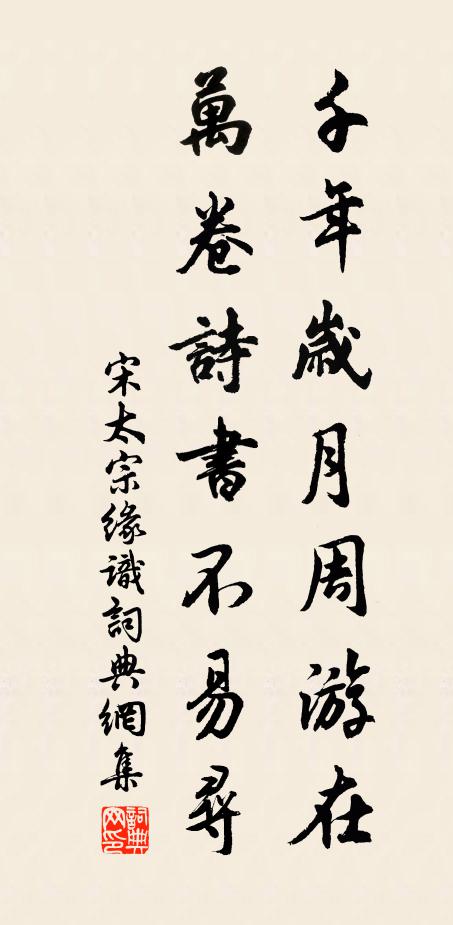 千年歲月周游在
萬卷詩書不易尋
宋太宗緣識詞典網集
詞典網印